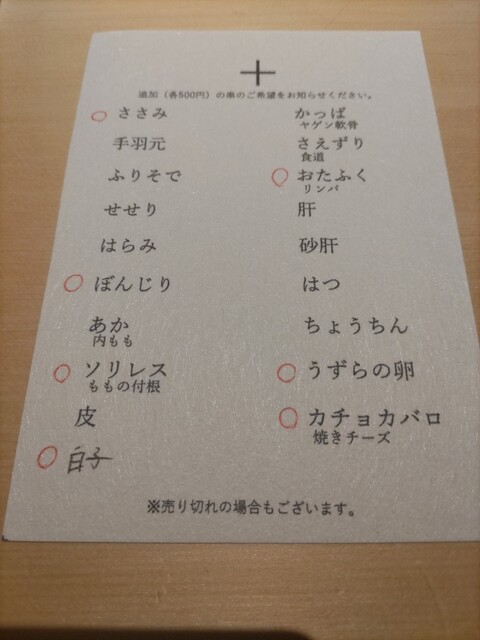 ＋
追加（各500円）の串のご希望をお知らせください。
ささみ
手羽元
ふりそで
せせり
はらみ
ぼんじり
あか
内もも
ソリレス
ももの付根
皮
白子
かっぱ
ヤゲン軟骨
さえずり
食道
おたふく
リンパ
肝
砂肝
はつ
ちょうちん
うずらの卵
カチョカバロ
焼きチーズ
※売り切れの場合もございます。